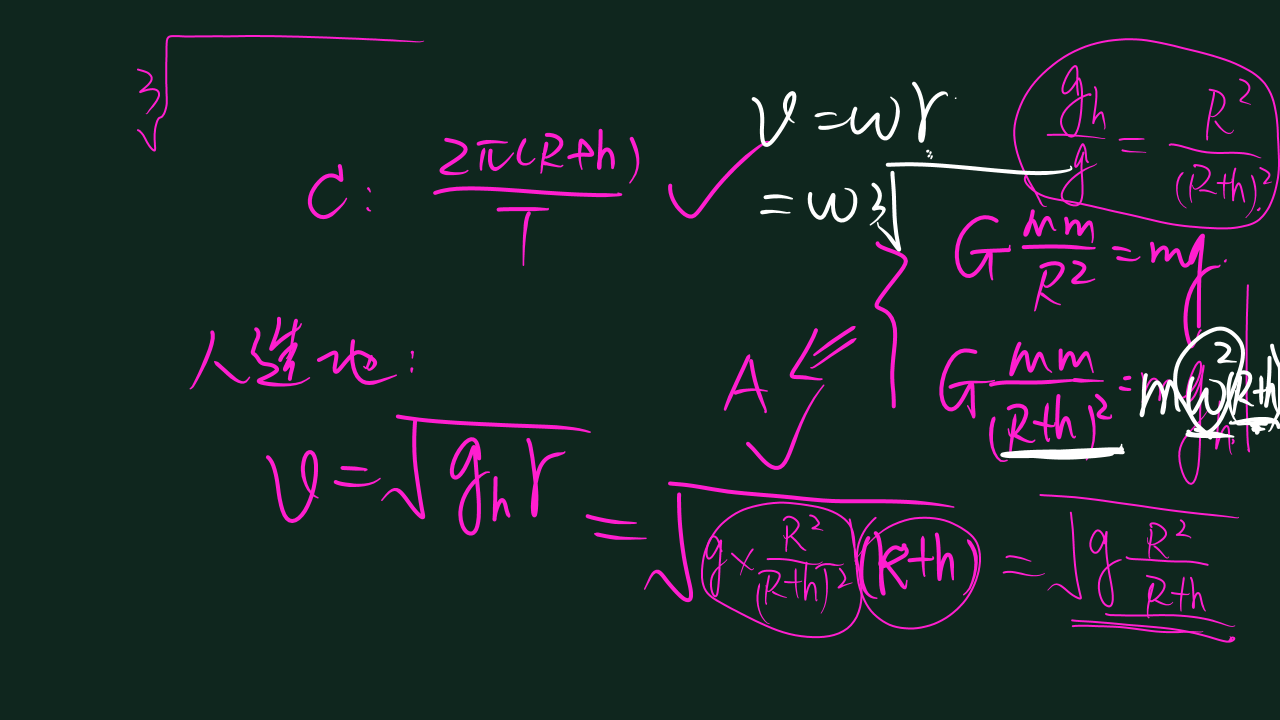 3√
C: 2π(R+h)/T
v=ωr
=ω3√
gh/g = R²/(R+h)²
G mm/R² = mg
G mm/(R+h)² = mω²(R+h)
A
人造地:
v=√ghr = √g×R²/(R+h)²(R+h) = √g R²/R+h